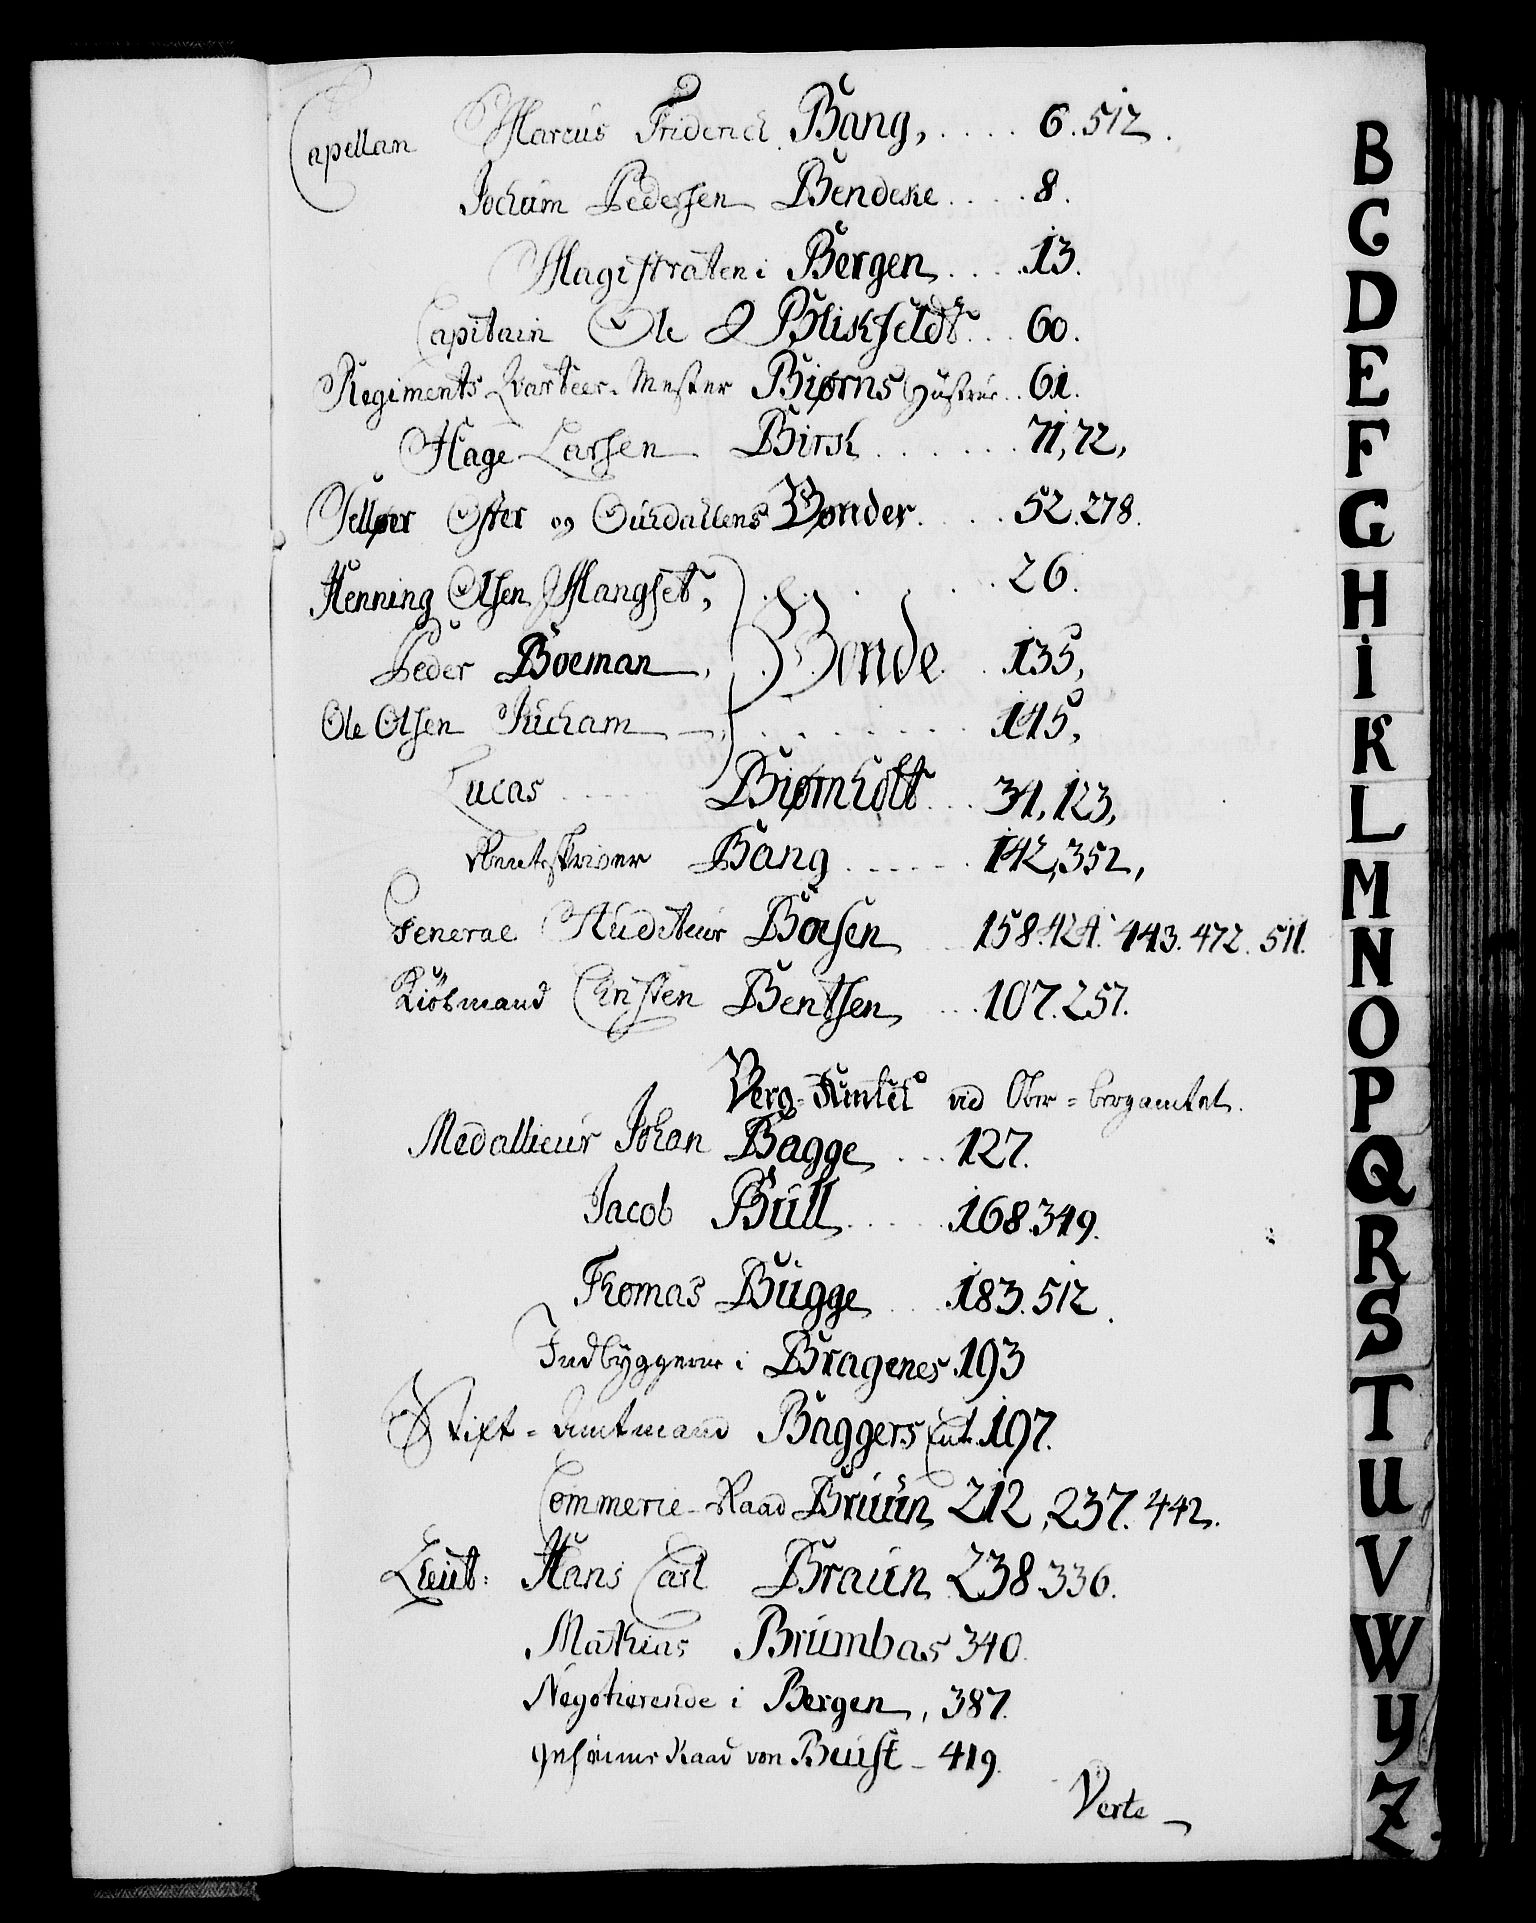 Capellan Marcus Friderich Bang, .... 6. 512.
Jochum Pedersen Bendeke .... 8.
Magistraten i Bergen .... 13.
Capitain Ole Blikfeldt .. 60.
Regiments Qvarteer-Mester Biørns Hustrue .. 61.
Hage Larsen Birch ...... 71, 72,
Øster og Bønder ..... 52. 278.
Henning Olsen Mangset, ....... 26.
Peder Boeman, Bonde .. 135,
Ole Olsen Jucham ........ 145,
Lucas ..... Biørnholtt ... 34, 123,
Amtskriver Bang ...... 142, 352,
General Auditeur Borsen .. 158. 424. 443. 472. 511.
Kiöbmand Christen Bentsen ... 107. 257.
Berg-Amtet ved Ober=bergamtet.
Medallieur Johan Bagge ... 127.
Jacob Bull ..... 168. 349.
Thomas Bugge .. 183. 512.
Indbyggerne i Bragenes. 193
Stift=Amtmand Baggers Enk. 197.
Commercie-Raad Bruun 212, 237. 442.
Lieut: Hans Carl Braun 238. 336.
Mathias Brumbas 340.
Negotierende i Bergen, 387.
geheime Raad von Beust - 419.
Verte
B
C
D
E
F
G
H
I
K
L
M
N
O
P
Q
R
S
T
U
V
W
Y
Z